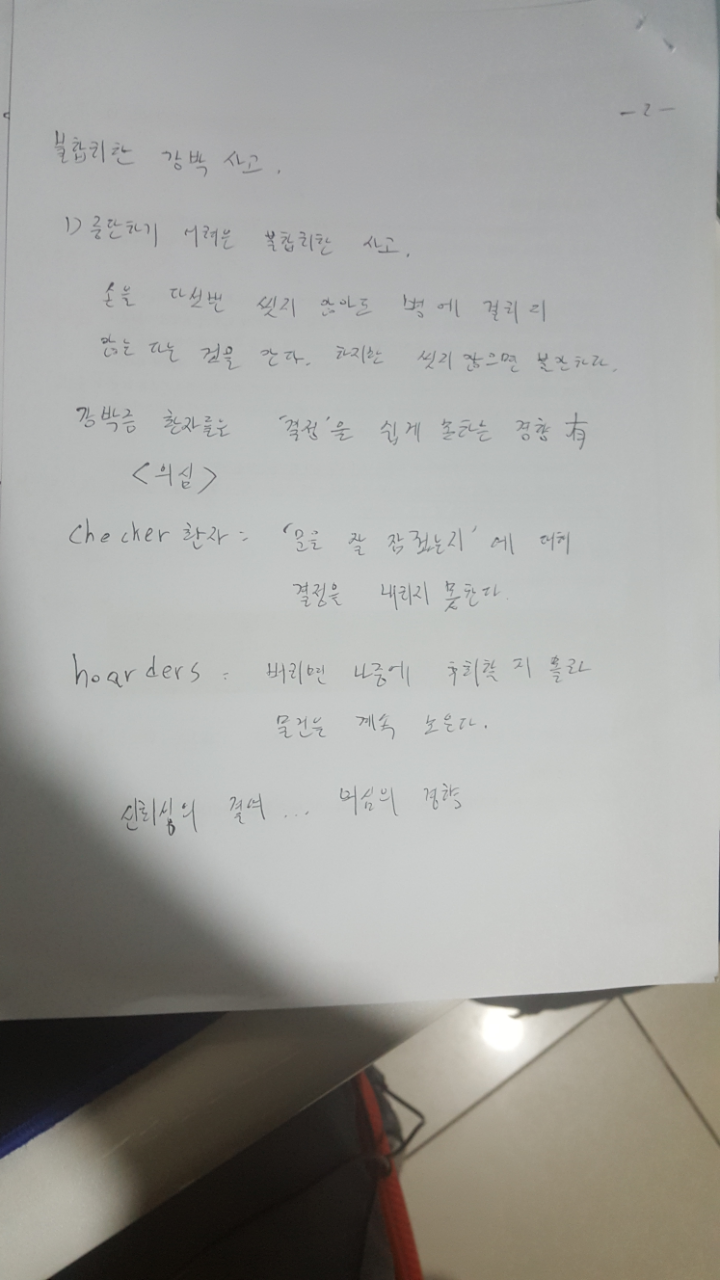 - 2 -
불합리한 강박 사고.
1) 중단하기 어려운 불합리한 사고.
손을 다섯번 씻지 않아도 병에 걸리지
않는 다는 것을 안다. 하지만 씻지 않으면 불안하다.
강박증 환자들은 '결정'을 쉽게 못하는 경향 有
<의심>
checker 환자 = '문을 잘 잠궜는지' 에 대해
결정을 내리지 못한다.
hoarders = 버리면 나중에 후회할 지 몰라
물건을 계속 모은다.
신뢰심의 결여 ... 의심의 경향